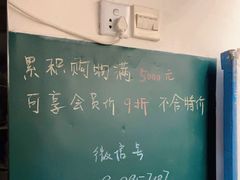 累积购物满5000元
可享会员价9折 不含特价
微信号